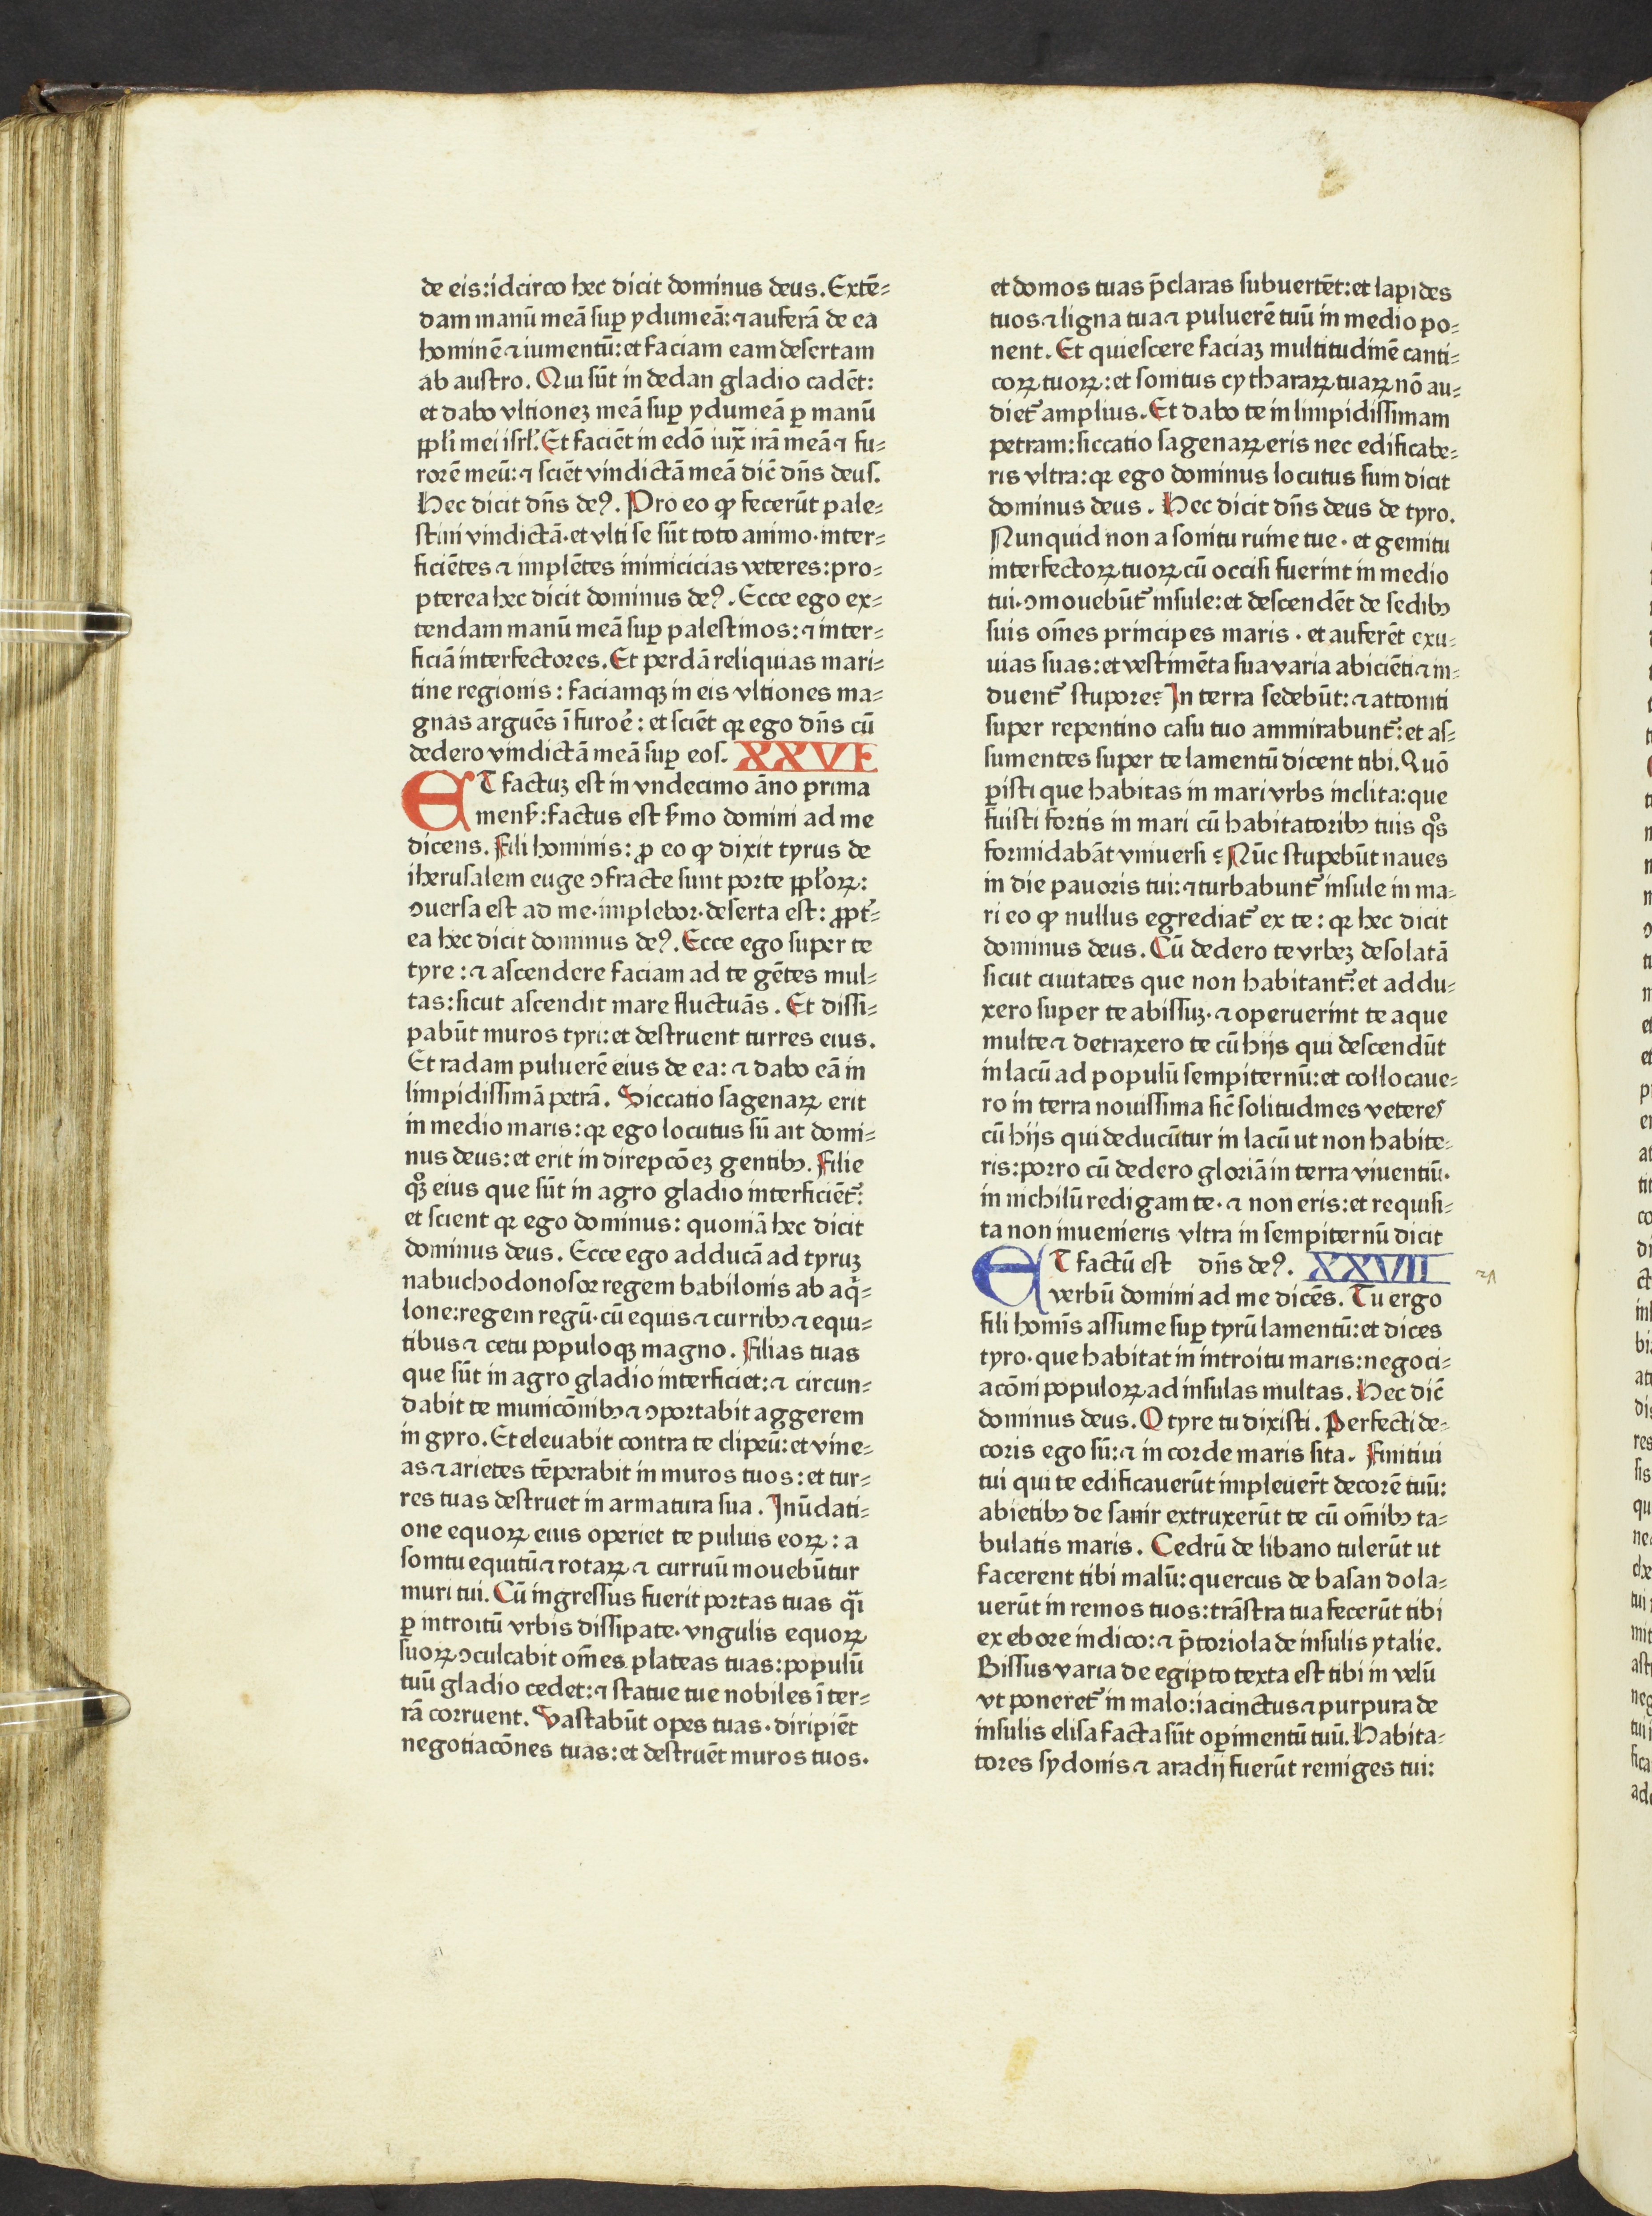 de eis:idcirco hec dicit dominus deus. Extē⸗
dam manū meā sup̱ ydumeā:⁊ auferā de ea
hominē ⁊ iumentū:et faciam eam desertam
ab austro. Qui sūt in dedan gladio cadēt:
et dabo vltionez meā sup̱ ydumeā p̱ manū
ppl̄i mei isrl̄. Et faciēt in edō iux̄ irā meā ⁊ fu⸗
rorē meū:⁊ sciēt vindictā meā dic̄ dn̄s deus.
Hec dicit dn̄s deꝰ. Pro eo ꝙ fecerūt pale⸗
stini vindictā·et vlti se sūt toto animo·inter⸗
ficiētes ⁊ implētes inimicicias veteres:pro⸗
pterea hec dicit dominus deꝰ. Ecce ego ex⸗
tendam manū meā sup̱ palestinos:⁊ inter⸗
ficiā interfectores. Et perdā reliquias mari⸗
tine regionis: faciamqꝫ in eis vltiones ma⸗
gnas arguēs ī furoē: et sciēt qꝛ ego dn̄s cū
dedero vindictā meā sup̱ eos. XXVI
ET factuz est in vndecimo āno prima
mens̄:factus est s̄mo domini ad me
dicens. Fili hominis: ꝓ eo ꝙ dixit tyrus de
iherusalem euge ↄfracte sunt porte ppl̄oꝝ:
ↄuersa est ad me·implebor·deserta est: ꝓpt̄⸗
ea hec dicit dominus deꝰ. Ecce ego super te
tyre: ⁊ ascendere faciam ad te gētes mul⸗
tas:sicut ascendit mare fluctuās. Et dissi⸗
pabūt muros tyri:et destruent turres eius.
Et radam puluerē eius de ea: ⁊ dabo eā in
limpidissimā petrā. Siccatio sagenaꝝ erit
in medio maris: qꝛ ego locutus sū ait domi⸗
nus deus: et erit in direpcōez gentibꝫ. Filie
qꝫ eius que sūt in agro gladio interficiēt᷑:
et scient qꝛ ego dominus: quoniā hec dicit
dominus deus. Ecce ego adducā ad tyruz
nabuchodonosor regem babilonis ab aq̇⸗
lone:regem regū·cū equis ⁊ curribꝫ ⁊ equi⸗
tibus ⁊ cetu populoqꝫ magno. Filias tuas
que sūt in agro gladio interficiet:⁊ circun⸗
dabit te municōnibꝫ ⁊ ↄportabit aggerem
in gyro. Et eleuabit contra te clipeū:et vine⸗
as ⁊ arietes tēperabit in muros tuos:et tur⸗
res tuas destruet in armatura sua. Inūdati⸗
one equoꝝ eius operiet te puluis eoꝝ: a
sonitu equitū ⁊ rotaꝝ ⁊ curruū mouebūtur
muri tui. Cū ingressus fuerit portas tuas q̄i
p̱ introitū vrbis dissipate·vngulis equoꝝ
suoꝝ ↄculcabit om̄es plateas tuas:populū
tuū gladio cedet:⁊ statue tue nobiles ī ter⸗
rā corruent. Vastabūt opes tuas·diripiēt
negotiacōnes tuas:et destruēt muros tuos.
et domos tuas p̄claras subuertēt:et lapides
tuos ⁊ ligna tua ⁊ puluerē tuū in medio po⸗
nent. Et quiescere faciaz multitudinē canti⸗
coꝝ tuoꝝ:et sonitus cytharaꝝ tuaꝝ nō au⸗
diet᷑ amplius. Et dabo te in limpidissimam
petram: siccatio sagenaꝝ eris nec edificabe⸗
ris vltra:qꝛ ego dominus locutus sum dicit
dominus deus. Hec dicit dn̄s deus de tyro.
Nunquid non a sonitu ruine tue· et gemitu
interfectoꝝ tuoꝝ cū occisi fuerint in medio
tui·ↄmouebūt᷑ insule:et descendēt de sedibꝫ
suis om̄es principes maris· et auferēt exu⸗
uias suas:et vestimēta sua varia abiciēt:⁊ in⸗
duent᷑ stupore? In terra sedebūt:⁊ attoniti
super repentino casu tuo ammirabunt᷑:et as⸗
sumentes super te lamentū dicent tibi. Quō
p̱isti que habitas in mari vrbs inclita:que
fuisti fortis in mari cū habitatoribꝫ tuis qͦs
formidabāt vniuersi? Nūc stupebūt naues
in die pauoris tui:⁊ turbabunt᷑ insule in ma⸗
ri eo ꝙ nullus egrediat᷑ ex te: qꝛ hec dicit
dominus deus. Cū dedero te vrbez desolatā
sicut ciuitates que non habitant᷑:et addu⸗
xero super te abissuz· ⁊ operuerint te aque
multe ⁊ detraxero te cū hijs qui descendūt
in lacū ad populū sempiternū:et collocaue⸗
ro in terra nouissima sic̄ solitudines veteres
cū hijs qui deducūtur in lacū ut non habite⸗
ris:porro cū dedero gloriā in terra viuentiū·
in nichilū redigam te· ⁊ non eris:et requisi⸗
ta non inuenieris vltra in sempiternū dicit
ET factū est dn̄s deꝰ. XXVII
verbū domini ad me dicēs. Tu ergo
fili homīs assume sup̱ tyrū lamentū:et dices
tyro·que habitat in introitu maris:negoci⸗
acōni populoꝝ ad insulas multas. Hec dic̄
dominus deus. O tyre tu dixisti. Perfecti de⸗
coris ego sū:⁊ in corde maris sita. Finitiui
tui qui te edificauerūt impleuer̄t decorē tuū:
abietibꝫ de sanir extruxerūt te cū om̄ibꝫ ta⸗
bulatis maris. Cedrū de libano tulerūt ut
facerent tibi malū: quercus de basan dola⸗
uerūt in remos tuos: trāstra tua fecerūt tibi
ex ebore indico:⁊ p̄toriola de insulis ytalie.
Bissus varia de egipto texta est tibi in velū
vt poneret᷑ in malo:iacinctus ⁊ purpura de
insulis elisa facta sūt op̱imentū tuū. Habita⸗
tores sydonis ⁊ aradij fuerūt remiges tui: